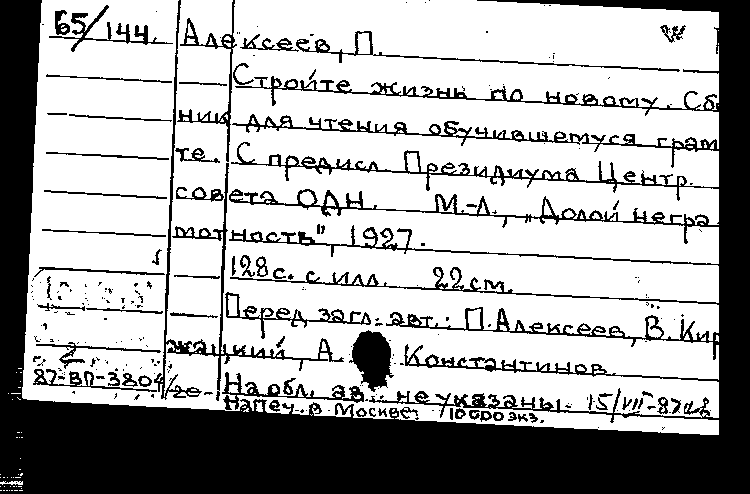 65/144. Алексеев, П.
Стройте жизнь по новому. Сб
ник для чтения обучившемуся грам
те. С предисл Президиума Центр.
совета ОДН. М.-Л., „Долой негра
мотность", 1927.
128с. с илл. 22см.
Перед загл. авт.: П.Алексеев, В. Кир
жацкий, А. Константинов.
2
87-ВП-3804/20- На обл. ав.. не указаны. 15/VII-87
Напеч. в Москве. 10000 экз.